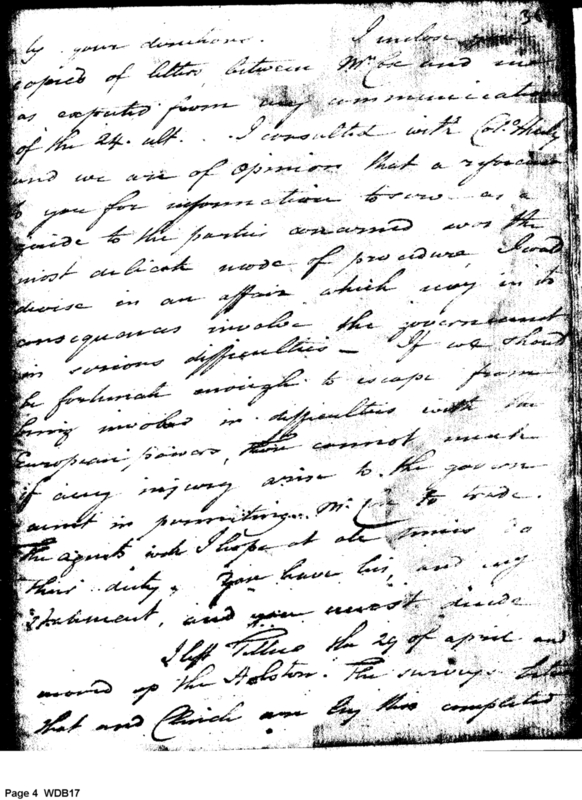 3
by your directions. I inclose you
copies of letters between Mr Coe and me
as expected from any communication
of the 24. ult. I consulted with Colo.
and we are of opinion that a reference
to you for information to serve as a
guide to the parties concerned was the
most delicate mode of procedure I could
devise in an affair which may in its
consequences involve the government
in serious difficulties — If we should
be fortunate enough to escape from
being involved in difficulties with the
European powers, there cannot much
if any injury arise to the govern
ment in permitting Mr. Coe to trade.
The agents will I hope at all times do
their duty. You have his, and my
statement, and you must decide
I left Tellico the 29 of april and
moved up the Holston. The surveys
that and Clinch are by this completed
Page 4 WDB17